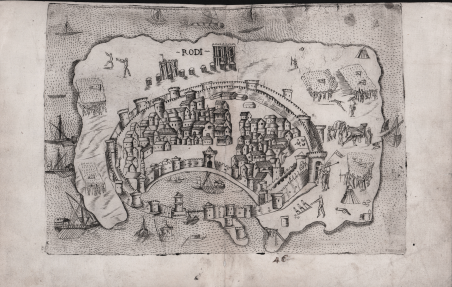 - RODI -
46